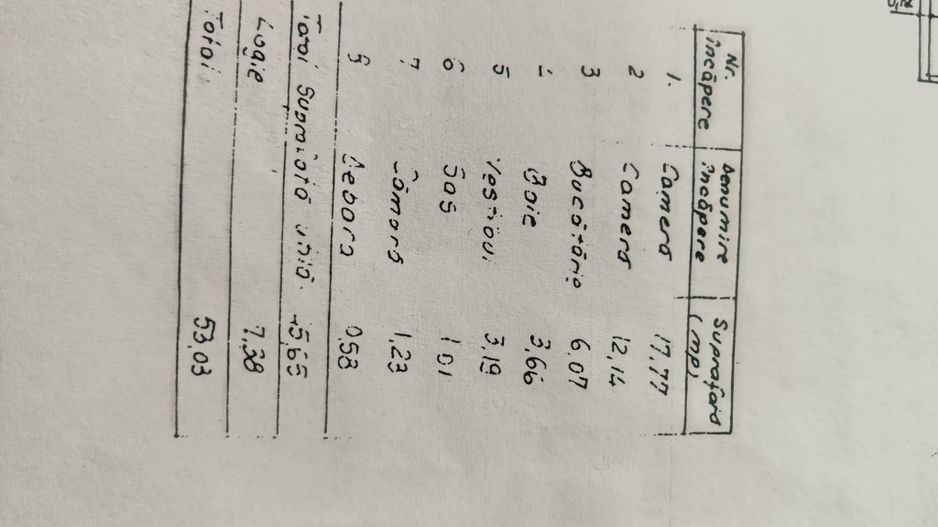 Nr. Denumire Suprafața
încăpere încăpere (mp)
1. Camera 17,77
2 Camera 12,14
3 Bucătărie 6,07
4 Baie 3,66
5 Vestibul 3,19
6 Sas 1,01
7 Cămară 1,23
8 Debara 0,58
Total Suprafață utilă 45,65
Logie 7,38
Total 53,03